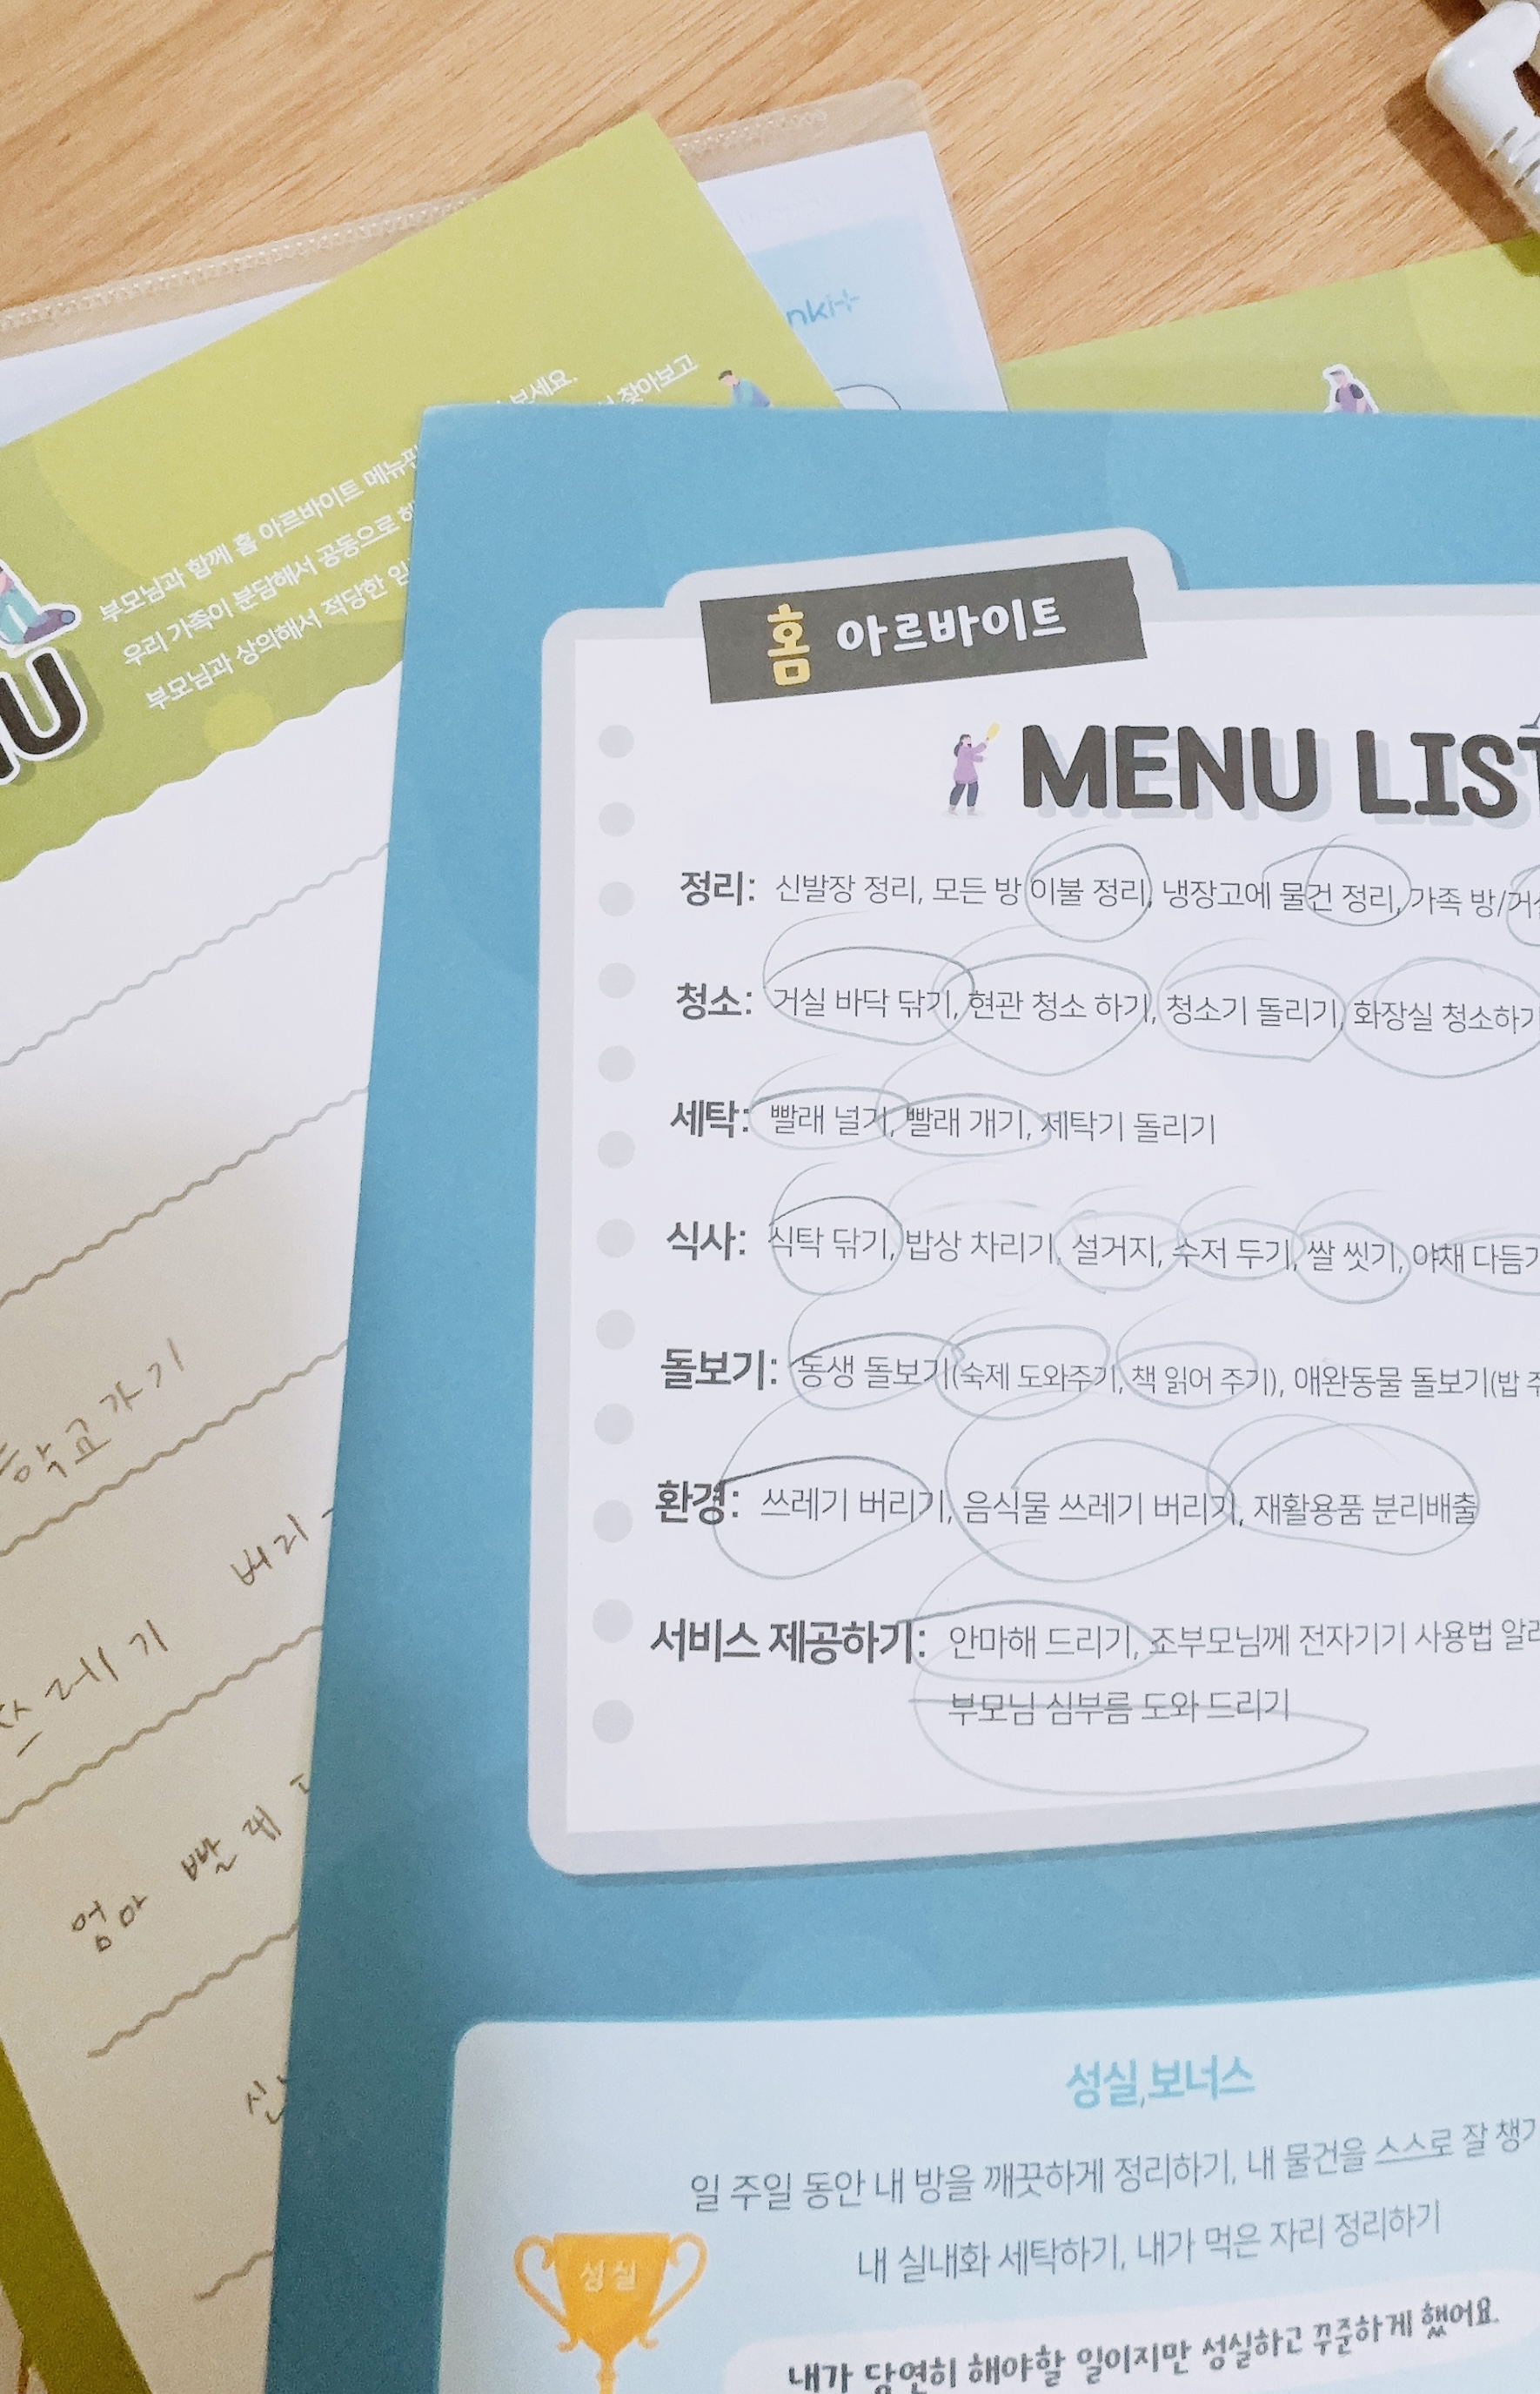 nki+
보세요.
찾아보고
부모님과 함께 홈 아르바이트 메뉴판
우리 가족이 분담해서 공동으로
부모님과 상의해서 적당한
NU
홈 아르바이트
MENU LIST
정리: 신발장 정리, 모든 방 이불 정리, 냉장고에 물건 정리, 가족 방/거실
청소: 거실 바닥 닦기, 현관 청소 하기, 청소기 돌리기, 화장실 청소하기
세탁: 빨래 널기, 빨래 개기, 세탁기 돌리기
식사: 식탁 닦기, 밥상 차리기, 설거지, 수저 두기, 쌀 씻기, 야채 다듬기
돌보기: 동생 돌보기(숙제 도와주기, 책 읽어 주기), 애완동물 돌보기(밥 주
환경: 쓰레기 버리기, 음식물 쓰레기 버리기, 재활용품 분리배출
서비스 제공하기: 안마해 드리기, 조부모님께 전자기기 사용법 알려
부모님 심부름 도와 드리기
학교가기
쓰레기 버리
엄마 빨래
신
성실,보너스
일 주일 동안 내 방을 깨끗하게 정리하기, 내 물건을 스스로 잘 챙기
내 실내화 세탁하기, 내가 먹은 자리 정리하기
성실
내가 당연히 해야할 일이지만 성실하고 꾸준하게 했어요.